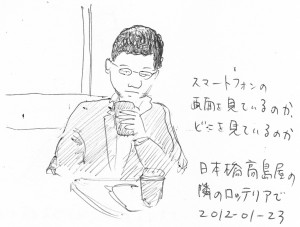 スマートフォンの
画面を見ているのか、
どこを見ているのか
日本橋高島屋の
隣のロッテリアで
2012-01-23